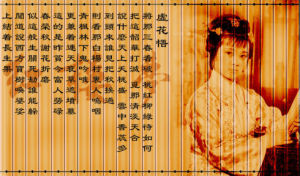 虛花悟
將那三春看破 桃紅柳綠待如何
把這韶華打滅 覓那清淡天合
說什麼天上夭桃盛 雲中杏蕊多
到頭來誰見把秋捱過
則看那白楊村裏人嗚咽
青楓林下鬼吟哦
更兼着連天衰草遮墳墓
這的是昨貧今富人勞碌
春榮秋謝花折磨
似這般生關死劫誰能躲
聞道說西方寶樹喚婆娑
上結着長生果